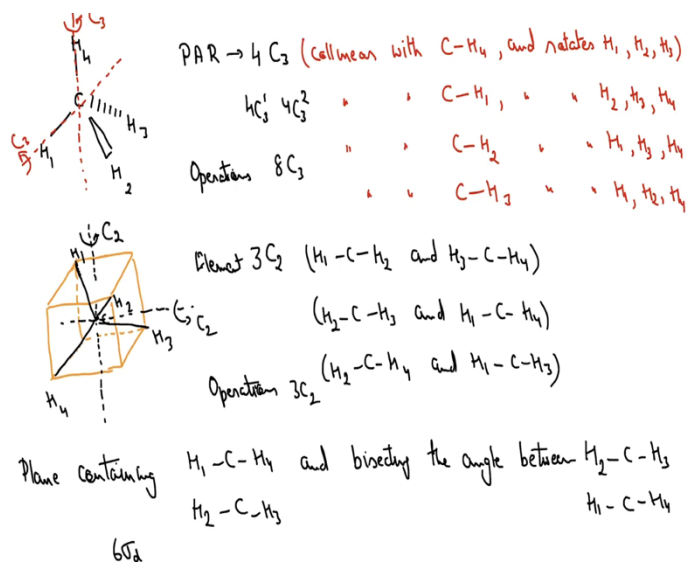 C₃
H₄
C
C₃
H₁
H₃
H₂
PAR → 4 C₃ (collinear with C-H₄, and rotates H₁, H₂, H₃)
4C₃¹ 4C₃² " " C-H₁, " " H₂, H₃, H₄
" " C-H₂ " " H₁, H₃, H₄
Operations 8C₃
" " C-H₃ " " H₁, H₂, H₄
C₂
H₁
H₂
C₂
H₃
H₄
Element 3C₂ (H₁-C-H₂ and H₃-C-H₄)
(H₂-C-H₃ and H₁-C-H₄)
(H₂-C-H₄ and H₁-C-H₃)
Operations 3C₂
Plane containing H₁-C-H₄ and bisecting the angle between H₂-C-H₃
H₂-C-H₃ H₁-C-H₄
6σd